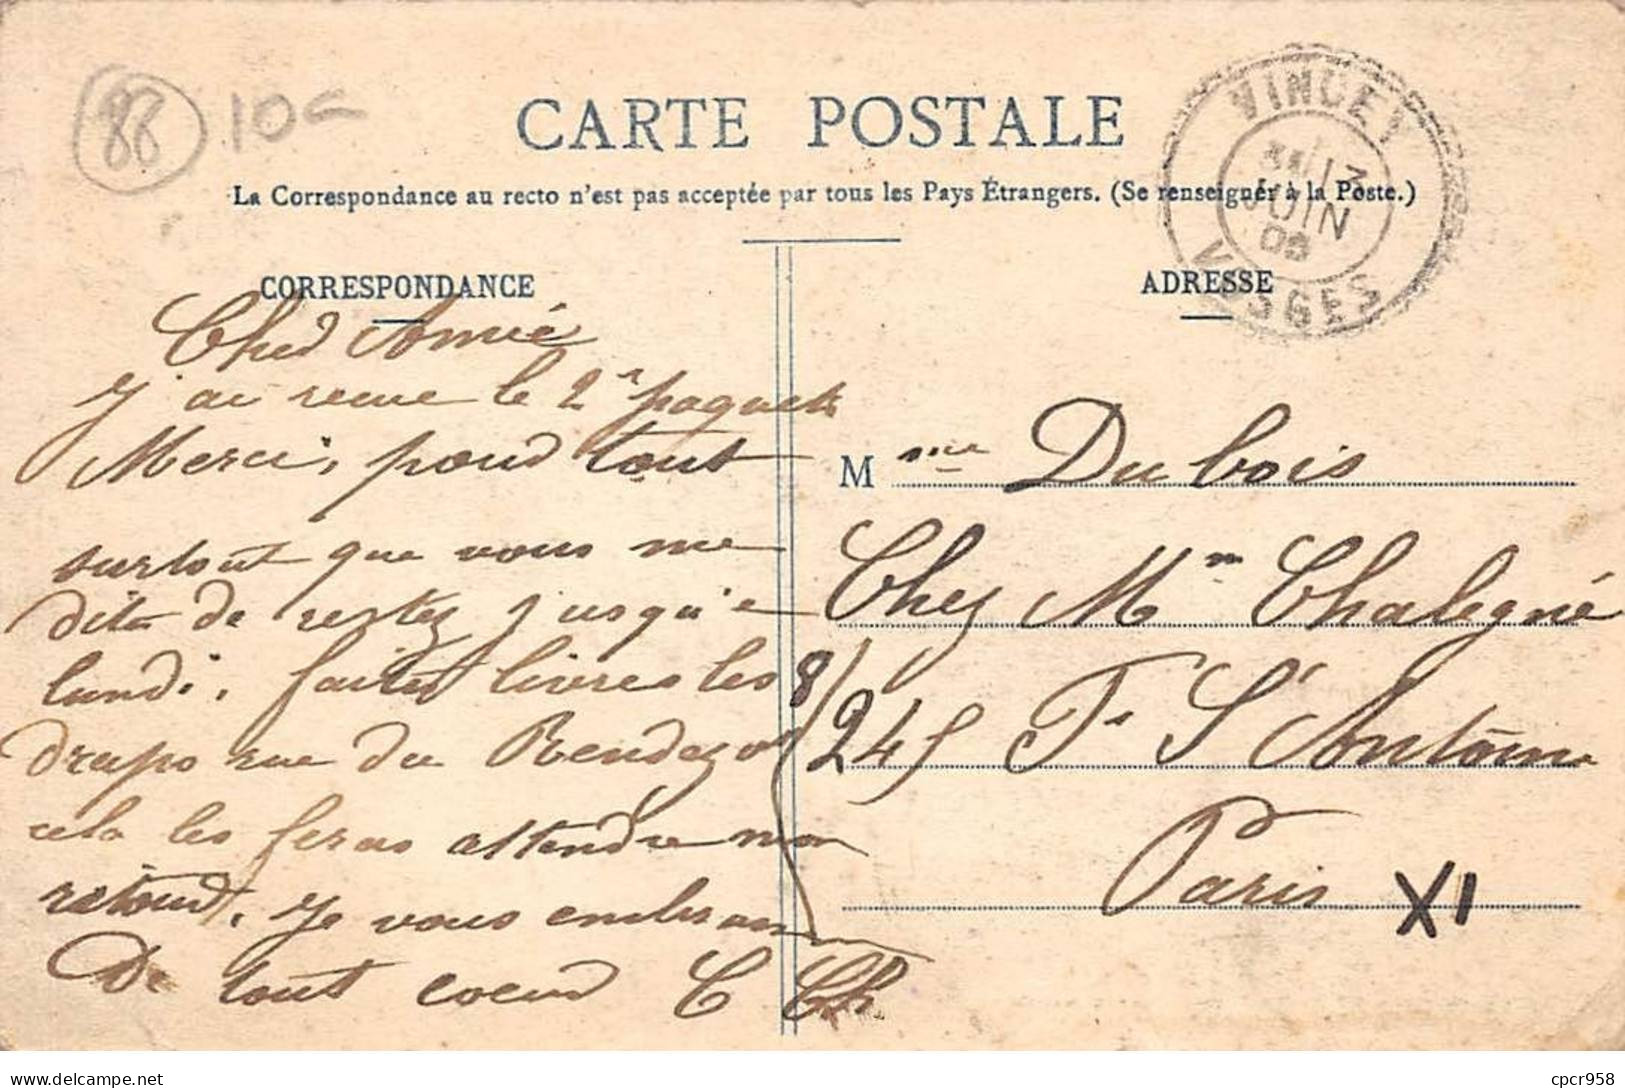 88 10c
CARTE POSTALE
La Correspondance au recto n'est pas acceptée par tous les Pays Étrangers. (Se renseigner à la Poste.)
VINCEY
13
JUIN
09
VOSGES
CORRESPONDANCE
Cher Amie
J'ai recue le 2e paquets
Merci, pour tout
surtout que vous me
dite de restez jusqu'a
lundi. faites livres les 8
draps rue du Rendezvos
cela les feras attendre mon
retour. Je vous embrassan
De tout coeur C Ch
ADRESSE
Mme Dubois
Chez Mm Chalegné
245 F. St Antoine
Paris XI
delcampe.net
cpcr958